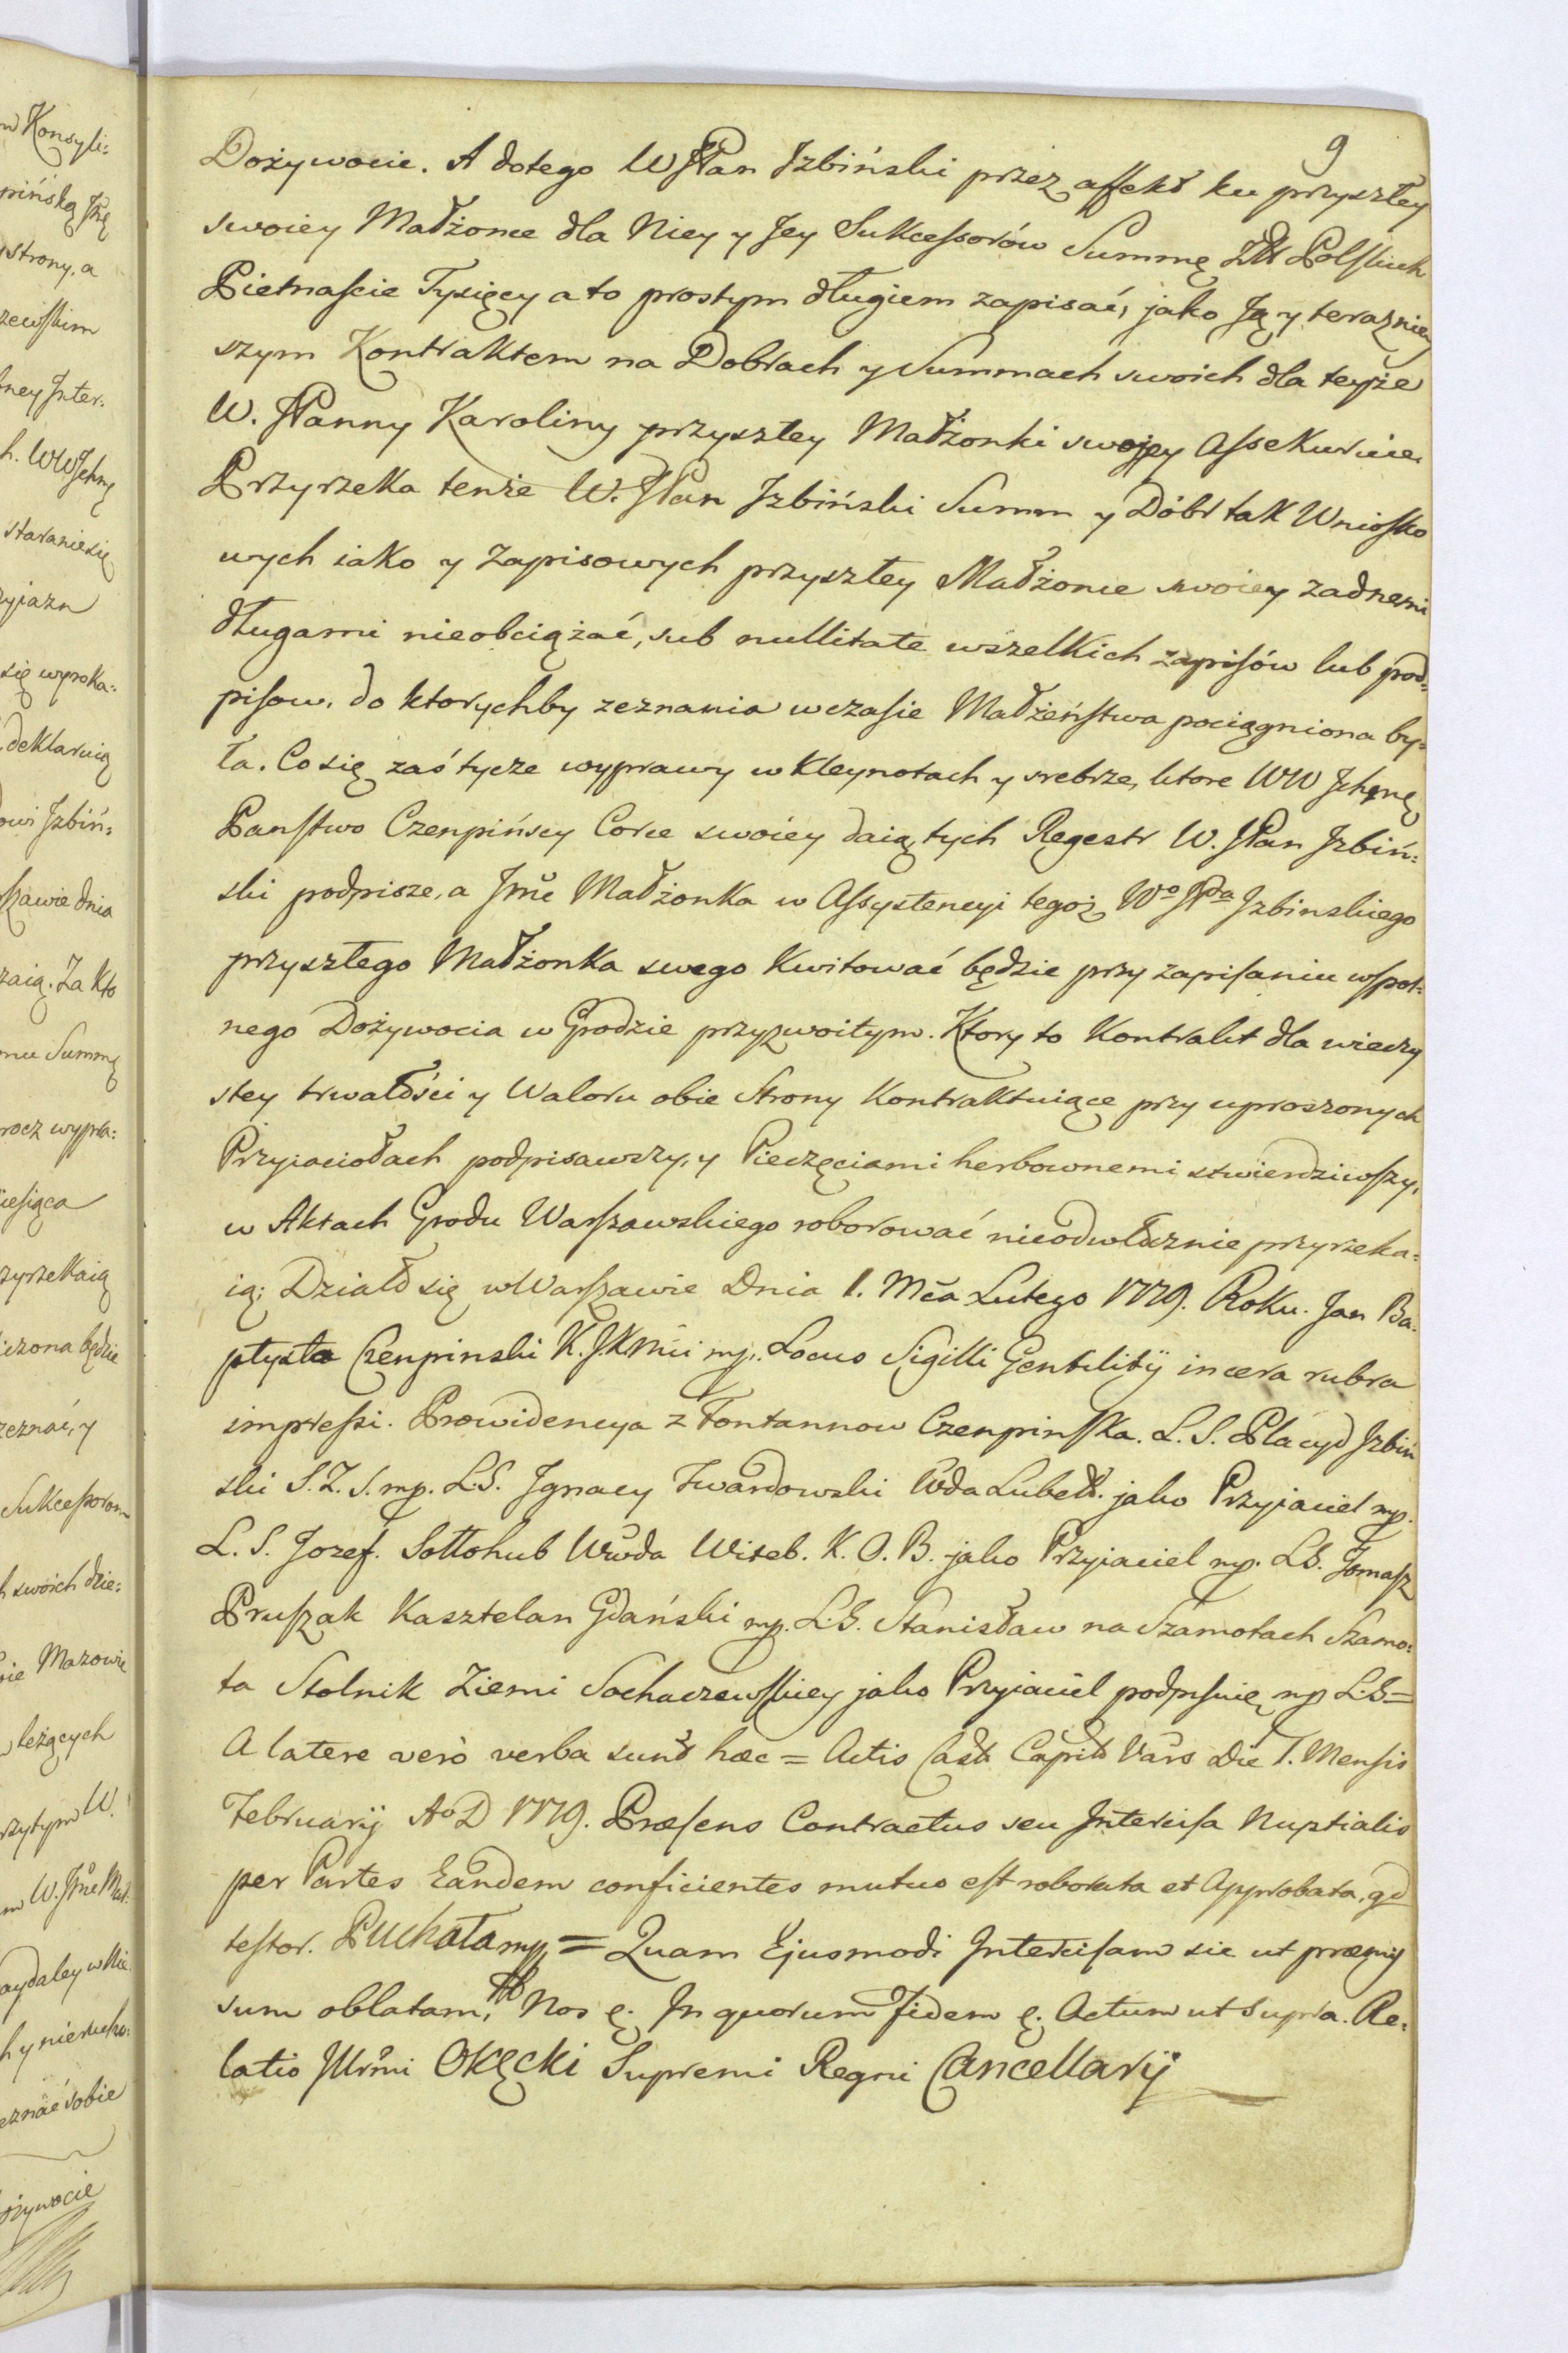 9
Dożywocie. A dotego WJPan Izbiński przez affekt ku przyszłey
swoiey Małżonce dla Niey y Jey Sukcessorów Summę Złł Polskich
Pietnaście Tysięcy a to prostym długiem zapisać, jako Ją y teraznie
szym Kontraktem na Dobrach y Summach swoich dla teyże
W. JPanny Karoliny przyszłey Małżonki swojey Assekuruie.
Przyrzeka tenże W. JPan Izbiński Summ y Dóbr tak Wniosko
wych iako y Zapisowych przyszłey Małżonce swoiey zadnemi
długami nieobciążać, sub nullitate wszelkich zapisów lub pod=
pisow, do ktorychby zeznania wczasie Małżeństwa pociągniona by=
ła. Co się zaś tycze wyprawy w Kleynotach y srebrze, ktore WW Jchmę
Państwo Czenpińscy Corce swoiey daią tych Regestr W. JPan Izbiń=
ski podpisze, a Jmć Małżonka w Assystencyi tegoż Wo JPda Izbinskiego
przyszłego Małżonka swego Kwitować będzie przy zapisaniu wspol=
nego Dożywocia w Grodzie przyzwoitym. Ktory to Kontrakt dla wieczy
stey trwałości y Waloru obie Strony Kontraktuiące przy uproszonych
Przyiaciołach podpisawszy, y Pieczęciami herbownemi stwierdziwszy,
w Aktach Grodu Warszawskiego roborować nieodwłocznie przyrzeka=
ią; Działo się w Warszawie Dnia 1. Mca Lutego 1779. Roku. Jan Ba=
ptysta Czenpinski K. J. K Mci mp. Locus Sigilli Gentilitÿ in cera rubra
impressi. Prowidencya z Fontannow Czenpinska. L. S. Placyd Izbiń
ski S. Z. S. mp. L.S. Ignacy Twardowski Wda Lubelt. jako Przyjaciel mp.
L. S. Jozef. Sołłohub Wwda Witeb. K. O. B. jako Przyiaciel mp. L.S. Tomasz
Pruszak Kasztelan Gdański mp. L.S. Stanisław na Szamotach Szamo=
ta Stolnik Ziemi Sochaczewskiey jako Przyiaciel podpisuię mp L.S=
A latere verò verba sunt hæc = Actis Castr Capitt Vars Die 1. Mensis
Februarij Ao D 1779. Præsens Contractus seu Intercisa Nuptialis
per Partes Eandem conficientes mutuo est roborata et Approbata, qd
testor. Puchała mp = Quam Ejusmodi Intercisam sic ut præmis
sum oblatam, Nos &. In quorum Fidem &. Actum ut Supra. Re=
latio Jllrmi OKĘCKI Supremi Regni Cancellarij